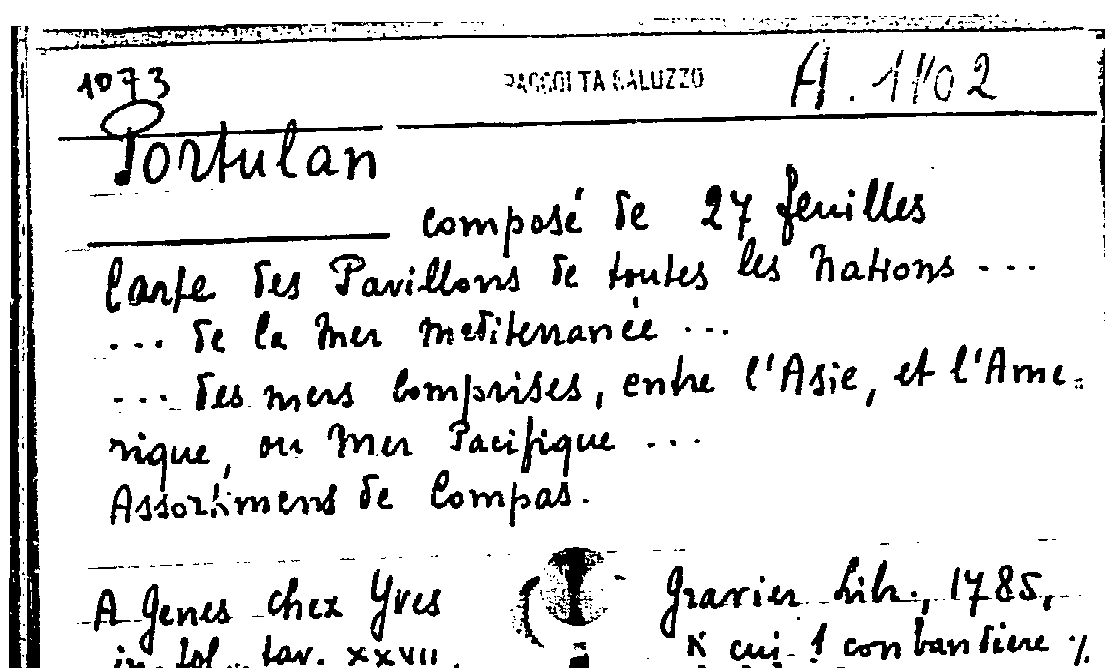 1073 RACCOLTA SALUZZO A. 1102
Portulan
composé de 27 feuilles
Carte des Pavillons de toutes les Nations ...
... de la Mer mediterranée ...
... des mers Comprises, entre l'Asie, et l'Ame=
rique, ou Mer Pacifique ...
Assortimens de Compas.
A Genes chex Yves Gravier Lib., 1785,
in fol. tav. XXVII. cui 1 con bandiere %.